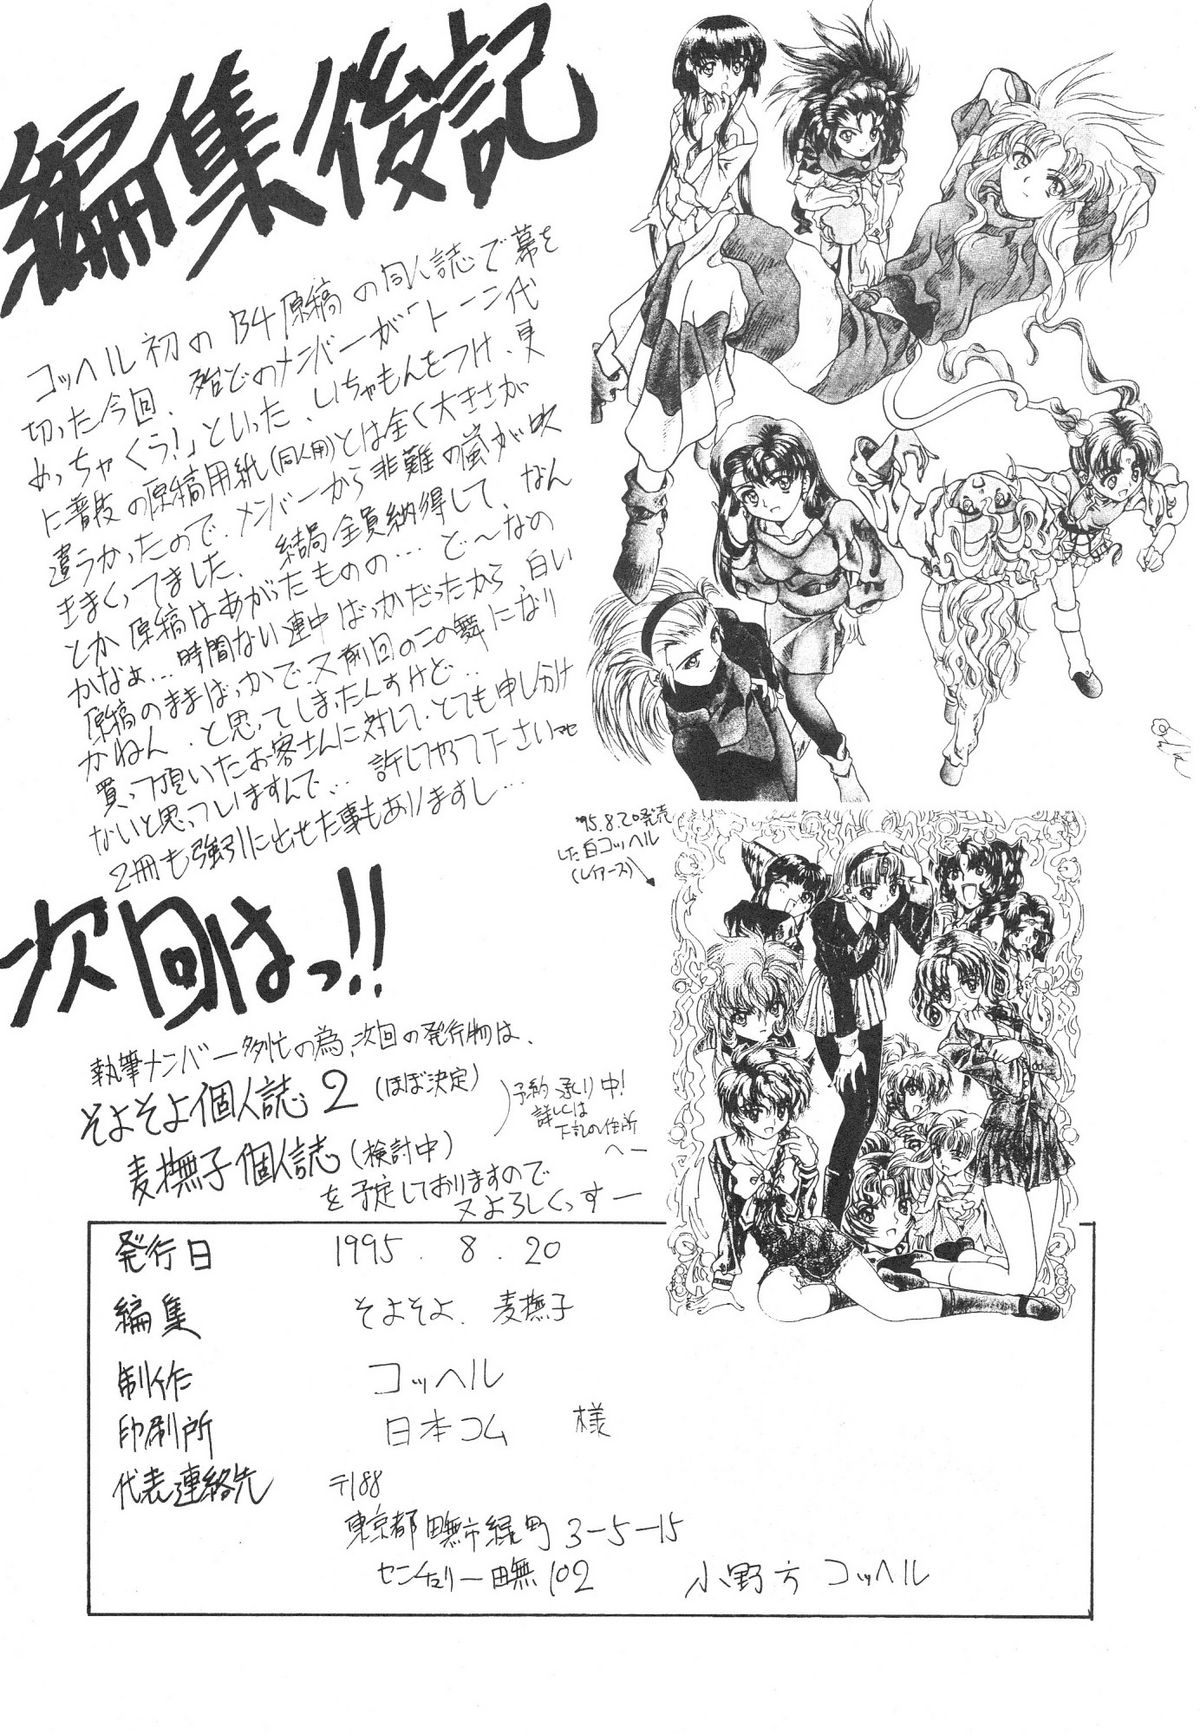 編集後記
コッヘル初のB4原稿の同人誌で幕を
切った今回、殆どのメンバーが「トーン代
めっちゃくう!」といった、いちゃもんをつけ、更
に普段の原稿用紙(同人用)とは全く大きさが
違うかったので、メンバーから非難の嵐が吹
きまくってました、結局全員納得して、なん
とか原稿はあがったものの…ど〜なの
かなぁ…時間ない連中ばっかだったから白い
原稿のままばっかで、又前回のこの舞になり
かねん、と思ってしまったんすけど…
買って頂いたお客さんに対して、とても申し分け
ないと思っていますんで…許しやって下さいませ
2冊も強引に出せた事もありますし…
'95.8.20発売
した白コッヘル
(レイアース)
次回はっ!!
執筆メンバー多忙の為、次回の発行物は、
そよそよ個人誌2(ほぼ決定)
麦撫子個人誌(検討中)
予約承り中!
詳しくは
下記の住所
へー
を予定しておりますので
又よろしくっすー
発行日 1995.8.20
編集 そよそよ、麦撫子
制作 コッヘル
印刷所 日本コム 様
代表連絡先 〒188
東京都田無市緑町3-5-15
センチュリー田無102 小野方 コッヘル